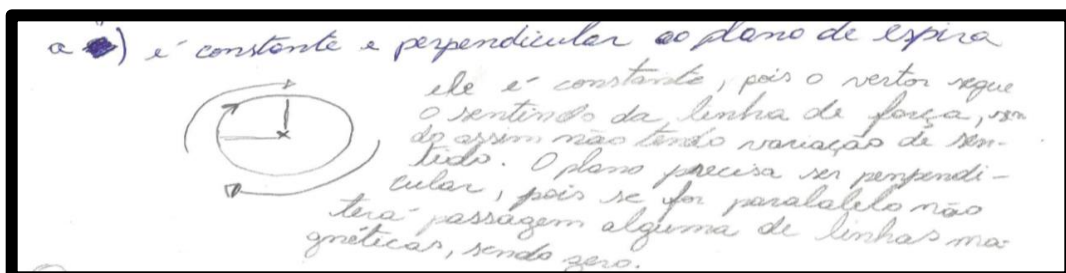 a ) é constante e perpendicular ao plano de espira
ele é constante, pois o vertor segue
o sentindo da linha de força, sen
do assim não tendo variação de sen-
tido. O plano precisa ser perpendi-
cular, pois se for paralalelo não
terá passagem alguma de linhas ma-
gnéticas, sendo zero.